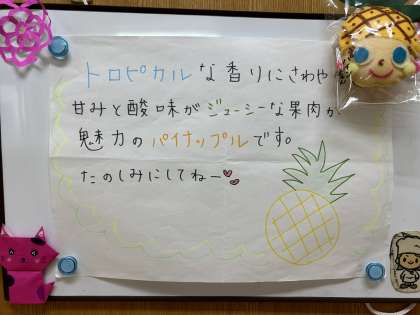 トロピカルな香りにさわや
甘みと酸味がジューシーな果肉が
魅力のパイナップルです。
たのしみにしてねー